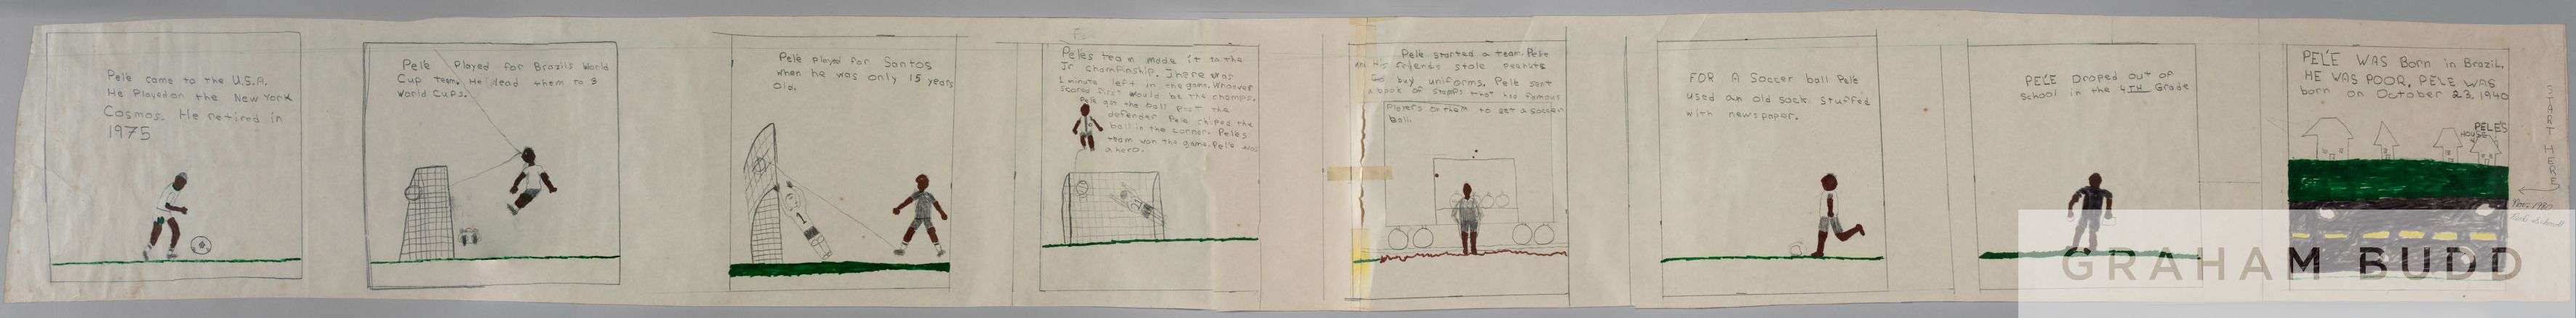 Pele came to the U.S.A.
He Played on the New York
Cosmos. He retired in
1975
Pele Played for Brazils World
Cup team. He lead them to 3
World Cups.
Pele played for Santos
when he was only 15 years
old.
Peles team made it to the
Jr Champinship. There was
1 minute left in the game. Whoever
scored first would be the champs.
Pele got the ball past the
defender Pele chiped the
ball in the corner. Peles
team won the game. Pele was
a hero.
Pele started a team. Pele
and His friends stole peanuts
to buy uniforms. Pele sent
a book of stamps that has famous
players on them to get a soccer
ball.
FOR A Soccer ball Pele
used an old sock stuffed
with newspaper.
PELE Droped out of
School in the 4TH Grade
PELE WAS Born in Brazil.
HE WAS POOR, PELE WAS
born on October 23, 1940
PELE'S
HOUSE
START HERE
1
GRAHAM BUDD